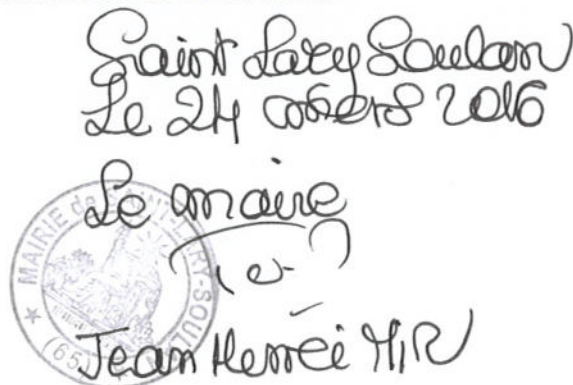 Saint Lary Soulan
Le 24 mars 2016
Le maire
Jean Henri MIR
MAIRIE de SAINT-LARY-SOUL
(65)